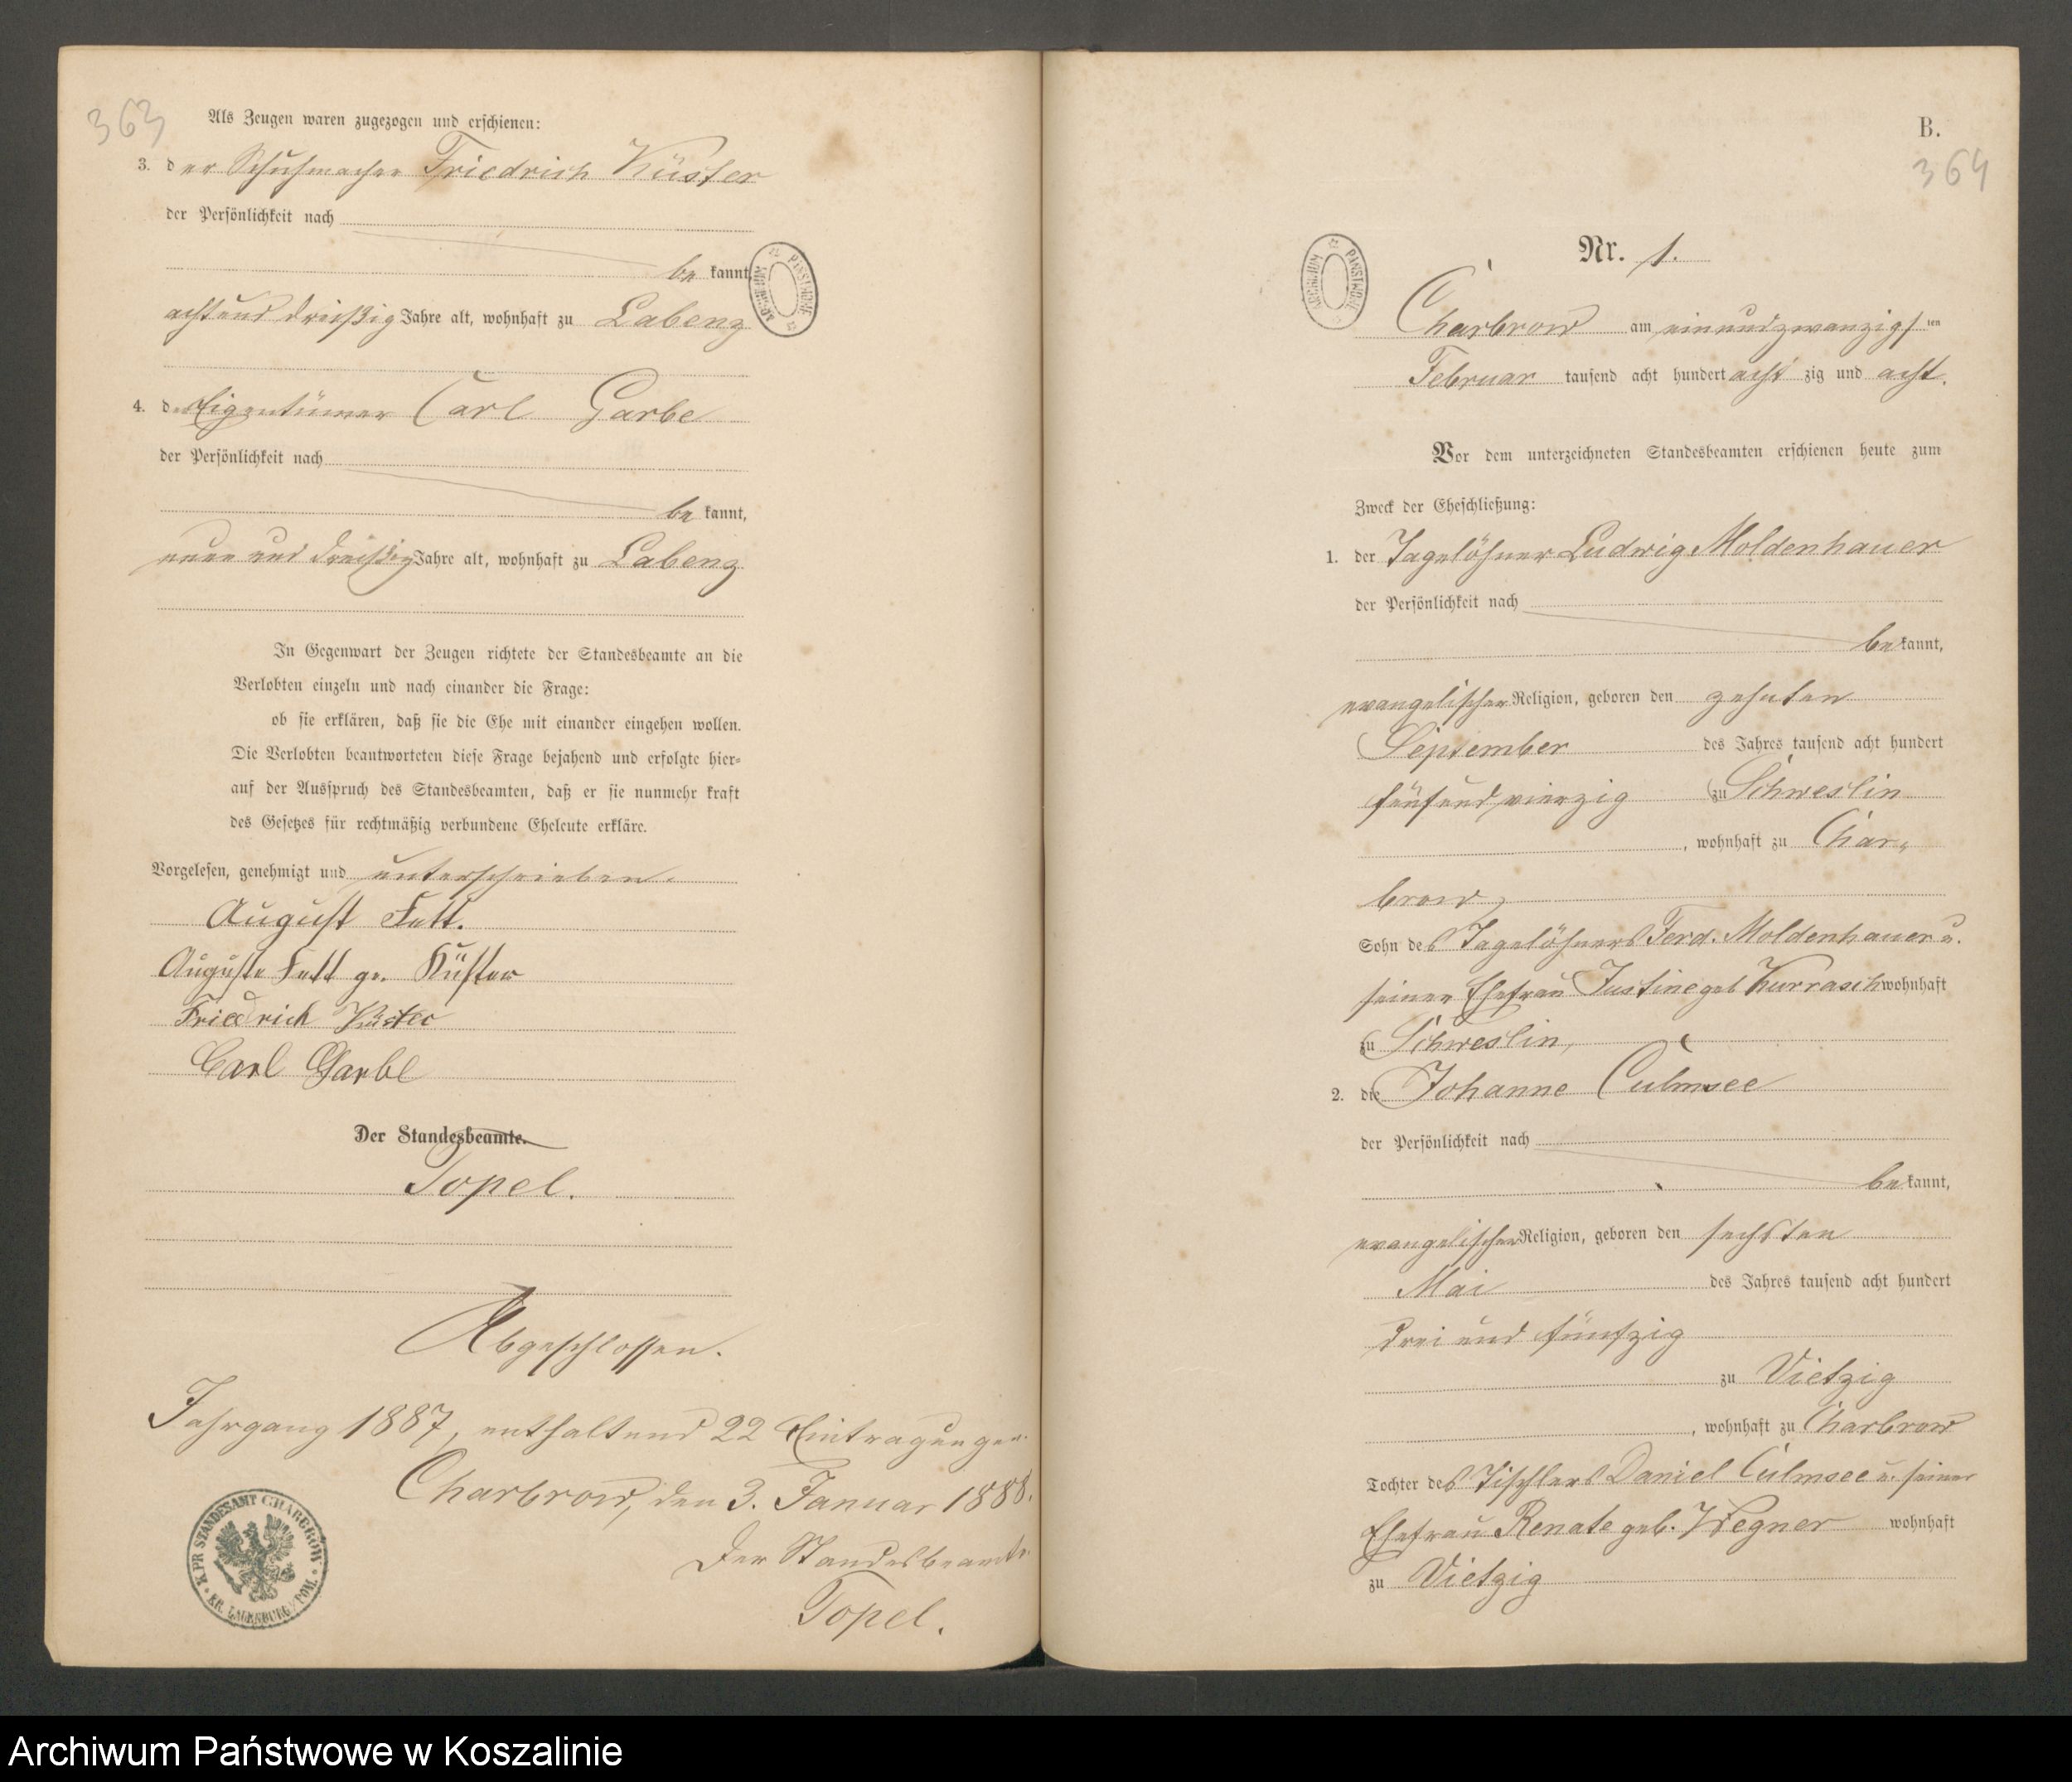 363
Als Zeugen waren zugezogen und erschienen:
3. der Schuhmacher Friedrich Küster
der Persönlichkeit nach
be kannt,
achtund dreißig Jahre alt, wohnhaft zu Labenz
4. der Eigentümer Carl Garbe
der Persönlichkeit nach
be kannt,
neun und dreißig Jahre alt, wohnhaft zu Labenz
In Gegenwart der Zeugen richtete der Standesbeamte an die
Verlobten einzeln und nach einander die Frage:
ob sie erklären, daß sie die Ehe mit einander eingehen wollen.
Die Verlobten beantworteten diese Frage bejahend und erfolgte hier-
auf der Ausspruch des Standesbeamten, daß er sie nunmehr kraft
des Gesetzes für rechtmäßig verbundene Eheleute erkläre.
Vorgelesen, genehmigt und unterschrieben.
August Fett.
Auguste Fett ge. Küster
Friedrich Küster
Carl Garbe
Der Standesbeamte.
Topel.
Abgeschlossen.
Jahrgang 1887, enthaltend 22 Eintragungen.
Charbrow, den 3. Januar 1888.
Der Standesbeamte
Topel.
K. PR. STANDESAMT CHARBROW
KR. LAUENBURG I/POM.
ARCHIWUM PAŃSTWOWE
B.
364
ARCHIWUM PAŃSTWOWE
Nr. 1.
Charbrow am einundzwanzigsten
Februar tausend acht hundert acht zig und acht.
Vor dem unterzeichneten Standesbeamten erschienen heute zum
Zweck der Eheschließung:
1. der Tagelöhner Ludwig Moldenhauer
der Persönlichkeit nach
be kannt,
evangelischer Religion, geboren den zehnten
September des Jahres tausend acht hundert
fünfundvierzig zu Schweslin
, wohnhaft zu Char-
brow,
Sohn des Tagelöhners Ferd. Moldenhauer u.
seiner Ehefrau Justine geb. Kurrasch wohnhaft
zu Schweslin,
2. die Johanne Culmsee
der Persönlichkeit nach
be kannt,
evangelischer Religion, geboren den sechsten
Mai des Jahres tausend acht hundert
drei und fünfzig
zu Vietzig
, wohnhaft zu Charbrow
Tochter des Tischlers Daniel Culmsee u. seiner
Ehefrau Renate geb. Wegner wohnhaft
zu Vietzig
Archiwum Państwowe w Koszalinie